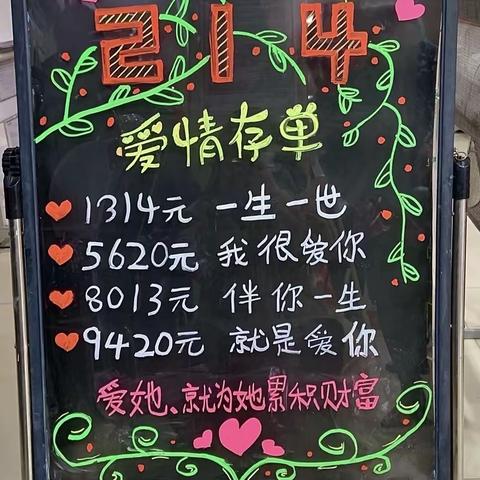 214
爱情存单
1314元 一生一世
5620元 我很爱你
8013元 伴你一生
9420元 就是爱你
爱她、就为她累积财富